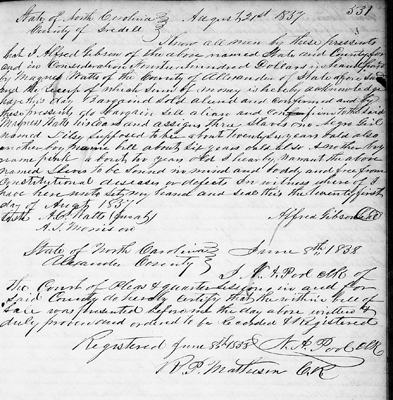 State of North Carolina } August 21st 1837 531
County of Iredell }
Know all men by these presents
that I Alfred Gibson of the above named State and County for
and in Consideration Nineteen hundred Dollars in hand paid
by Magnes Watts of the County of Alexander & State aforesaid
the receipt of which Sum of money is hereby acknowledged
have this day Bargained sold aliend and Confirmed and by
these presents do Bargain Sell alien and Confirm to the said
Watts his heirs and assigns three Slaves One Girl
named supposed to be about Twenty six years old also
another boy name bill about six years old also Another boy
name frank about two years old I hereby Warrant the above
named Slaves to be Sound in mind and body and free from
Constitutional diseases or defects In witness where of I
have here unto Set my hand and seal this the Twenty first
day of August 1837
Watts (Jurat) Alfred Gibson
A. S. Morrison
State of North Carolina } June 8th 1838
Alexander County }
I Pool Clk of
The Court of Pleas & quarter Sessions in and for
Said County do hereby Certify that the within bill of
Sale was presented before me the day above written &
duly proven and ordered to be Recorded & Registered
Registered June 8th 1838 Pool Clk
R. P. Matheson